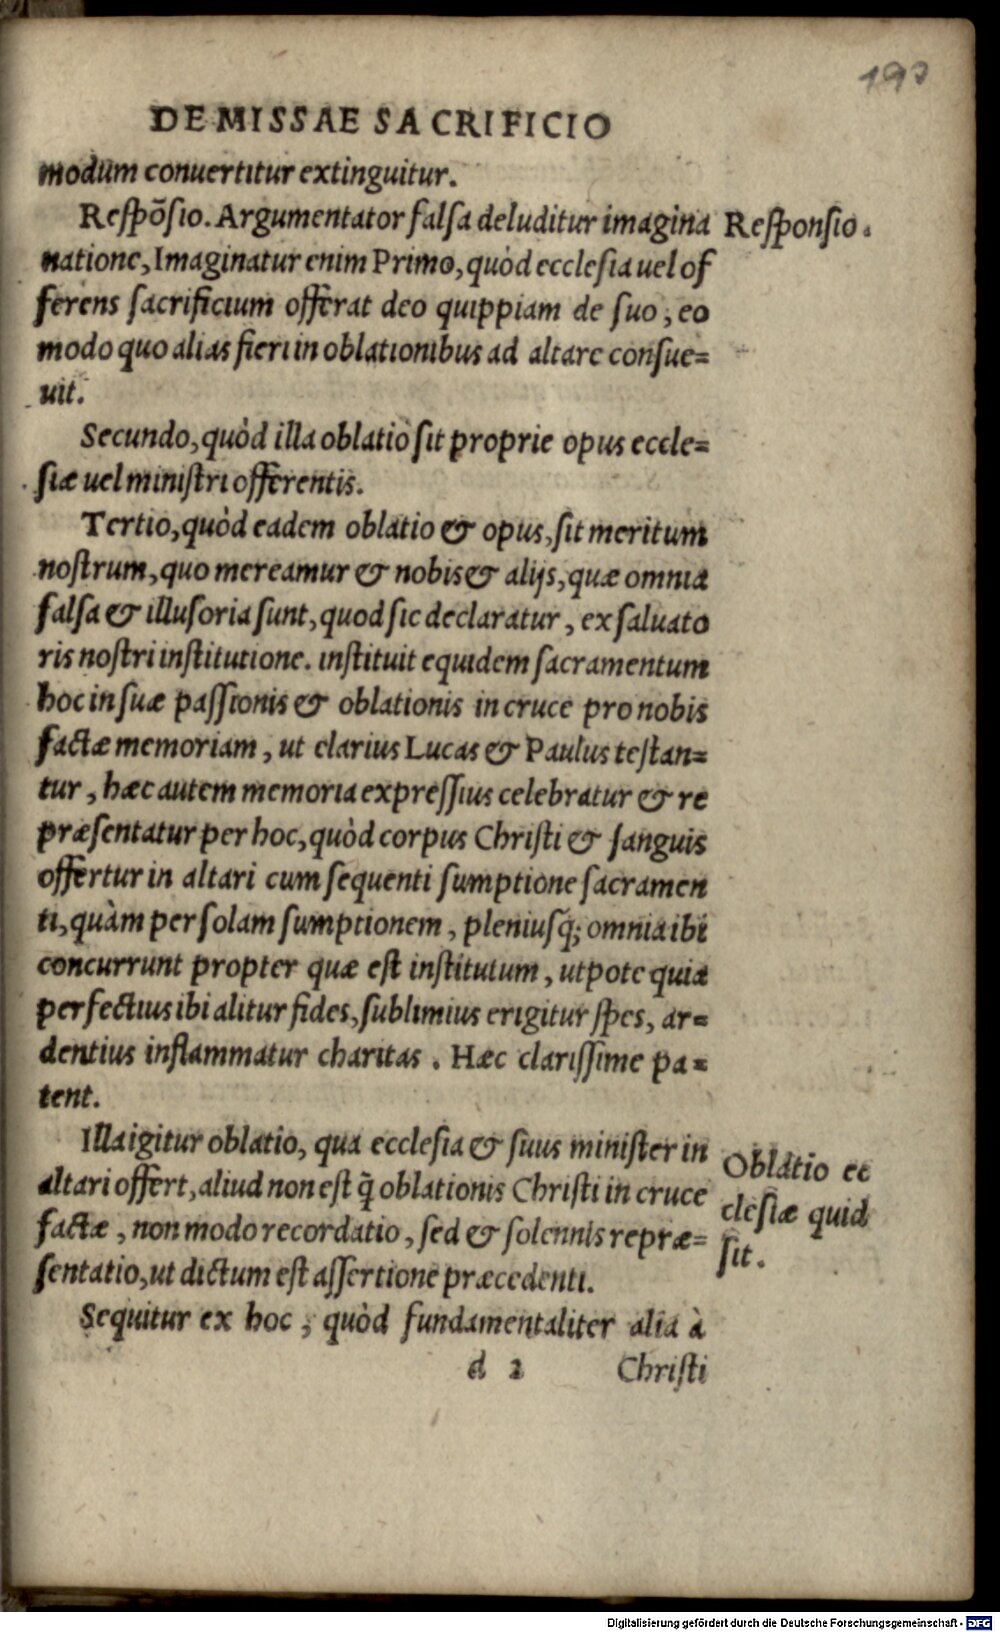 193
DE MISSAE SACRIFICIO
modum conuertitur extinguitur.
Respõsio. Argumentator falsa deluditur imagina
Responsio.
natione, Imaginatur enim Primo, quòd ecclesia uel of
ferens sacrificium offerat deo quippiam de suo, eo
modo quo alias fieri in oblationibus ad altare consue=
uit.
Secundo, quòd illa oblatio sit proprie opus eccle=
siæ uel ministri offerentis.
Tertio, quòd eadem oblatio & opus, sit meritum
nostrum, quo mereamur & nobis & alijs, quæ omnia
falsa & illusoria sunt, quod sic declaratur, ex saluato
ris nostri institutione. instituit equidem sacramentum
hoc in suæ passionis & oblationis in cruce pro nobis
factæ memoriam, ut clarius Lucas & Paulus testan=
tur, hæc autem memoria expressius celebratur & re
præsentatur per hoc, quòd corpus Christi & sanguis
offertur in altari cum sequenti sumptione sacramen
ti, quàm per solam sumptionem, pleniusq; omnia ibi
concurrunt propter quæ est institutum, utpote quia
perfectius ibi alitur fides, sublimius erigitur spes, ar=
dentius inflammatur charitas. Hæc clarissime pa=
tent.
Illa igitur oblatio, qua ecclesia & suus minister in
altari offert, aliud non est q̃ oblationis Christi in cruce
factæ, non modo recordatio, sed & solennis repræ=
sentatio, ut dictum est assertione præcedenti.
Oblatio ec
clesiæ quid
sit.
Sequitur ex hoc, quòd fundamentaliter alia à
d 2 Christi
Digitalisierung gefördert durch die Deutsche Forschungsgemeinschaft - DFG